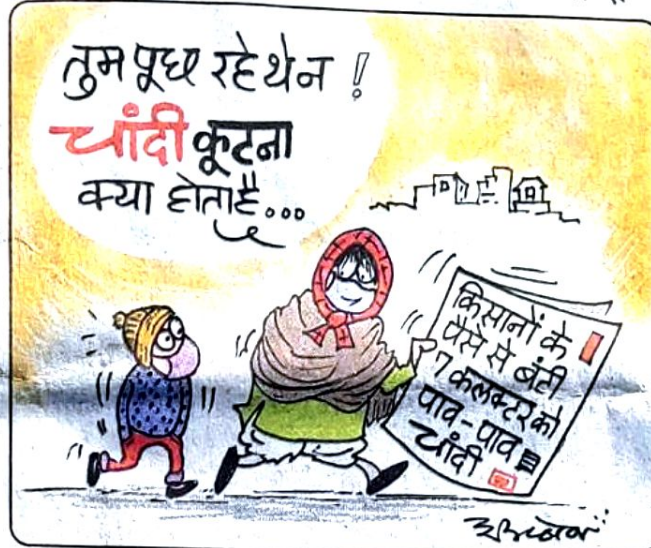 तुम पूछ रहे थे न !
चांदी कूटना
क्या होता है...
किसानों के
पैसे से बंटी
7 कलक्टर को
पाव-पाव
चांदी